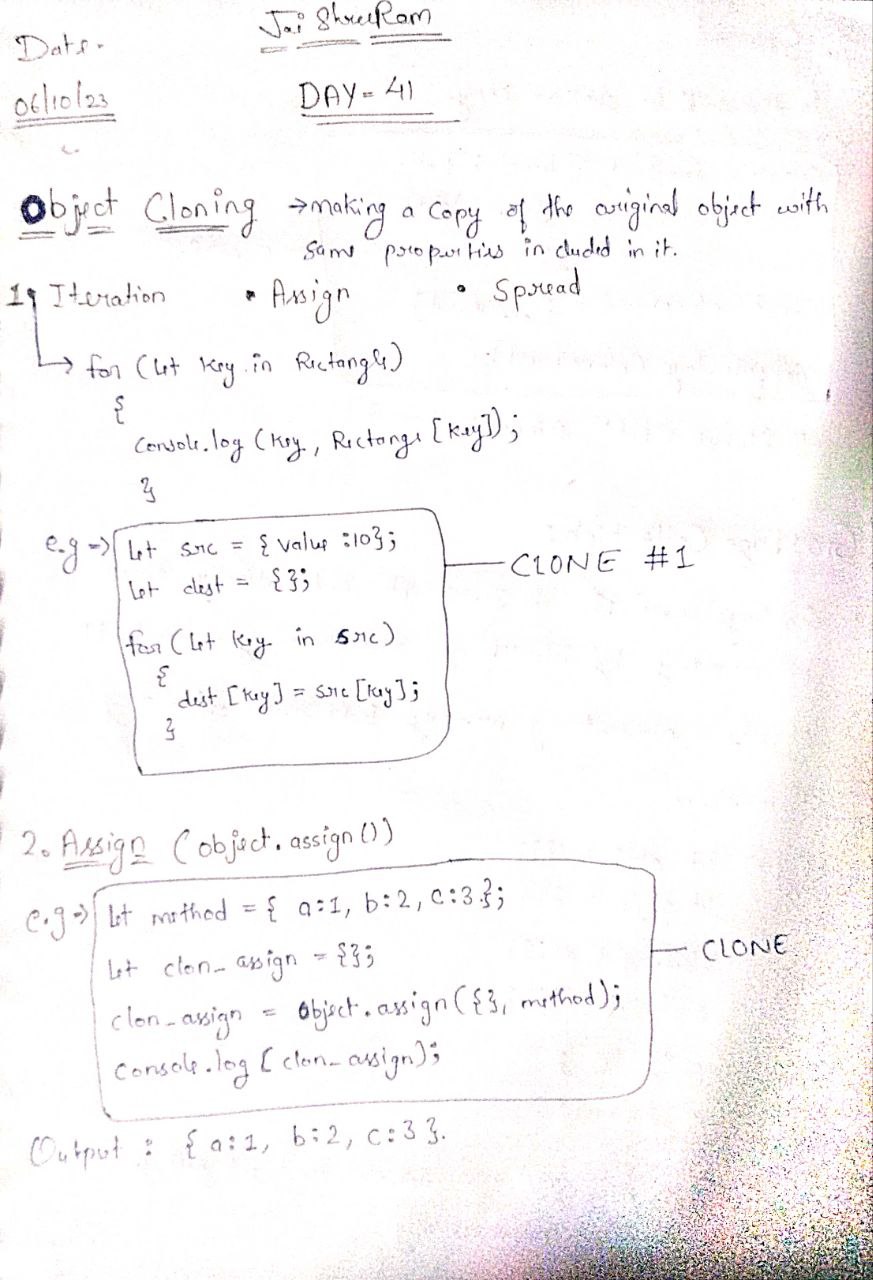 Jai ShreeRam
Date.
06/10/23
DAY = 41
Object Cloning → making a copy of the original object with
same properties included in it.
1. Iteration • Assign • Spread
→ for (let key in Rectangle)
{
console.log (key, Rectange [key]);
}
e.g → let src = { value :10};
let dest = {};
for (let key in src)
{
dest [key] = src [key];
}
CLONE #1
2. Assign (object.assign())
e.g → let method = { a:1, b:2, c:3};
let clon_assign = {};
clon_assign = object.assign({}, method);
console.log [clon_assign);
CLONE
Output : { a:1, b:2, c:3 }.